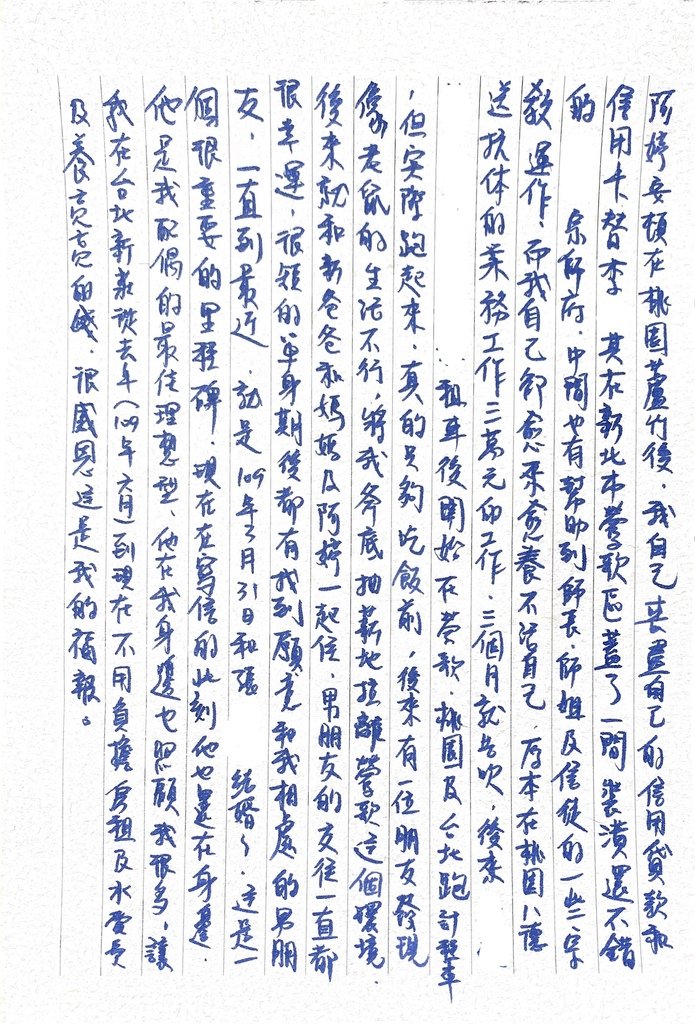 阿婷安頓在桃園蘆竹後，我自己共蓋自己的信用貸款和
信用卡替李 其在新北市鶯歌區蓋了一間裝潢還不錯
的 宗師府．中間也有幫助到師長．師姐及信徒的一些字
教運作，而我自己卻愈來愈養不活自己．原本在桃園八德
送抗体的業務工作三萬元的工作．三個月就告吹，後來
租車後開始在鶯歌．桃園及台北跑計程車
，但實際跑起來，真的只夠吃飯前，後來有一位朋友發現
像老鼠的生活不行，將我斧底抽薪地拉離鶯歌這個環境．
後來就和新爸爸和媽媽及阿婷一起住．男朋友的交往一直都
很幸運，很短的單身期後都有找到願意和我相處的男朋
友，一直到最近．就是109年 月31日和張 結婚了．這是一
個很重要的里程碑，現在在寫信的此刻他也是在身邊．
他是我配偶的最佳理想型、他在我身邊也照顧我很多，讓
我在台北新 從去年（109年六月）到現在不用負擔房租及水電費
及養亮亮的錢．很感恩這是我的福報。